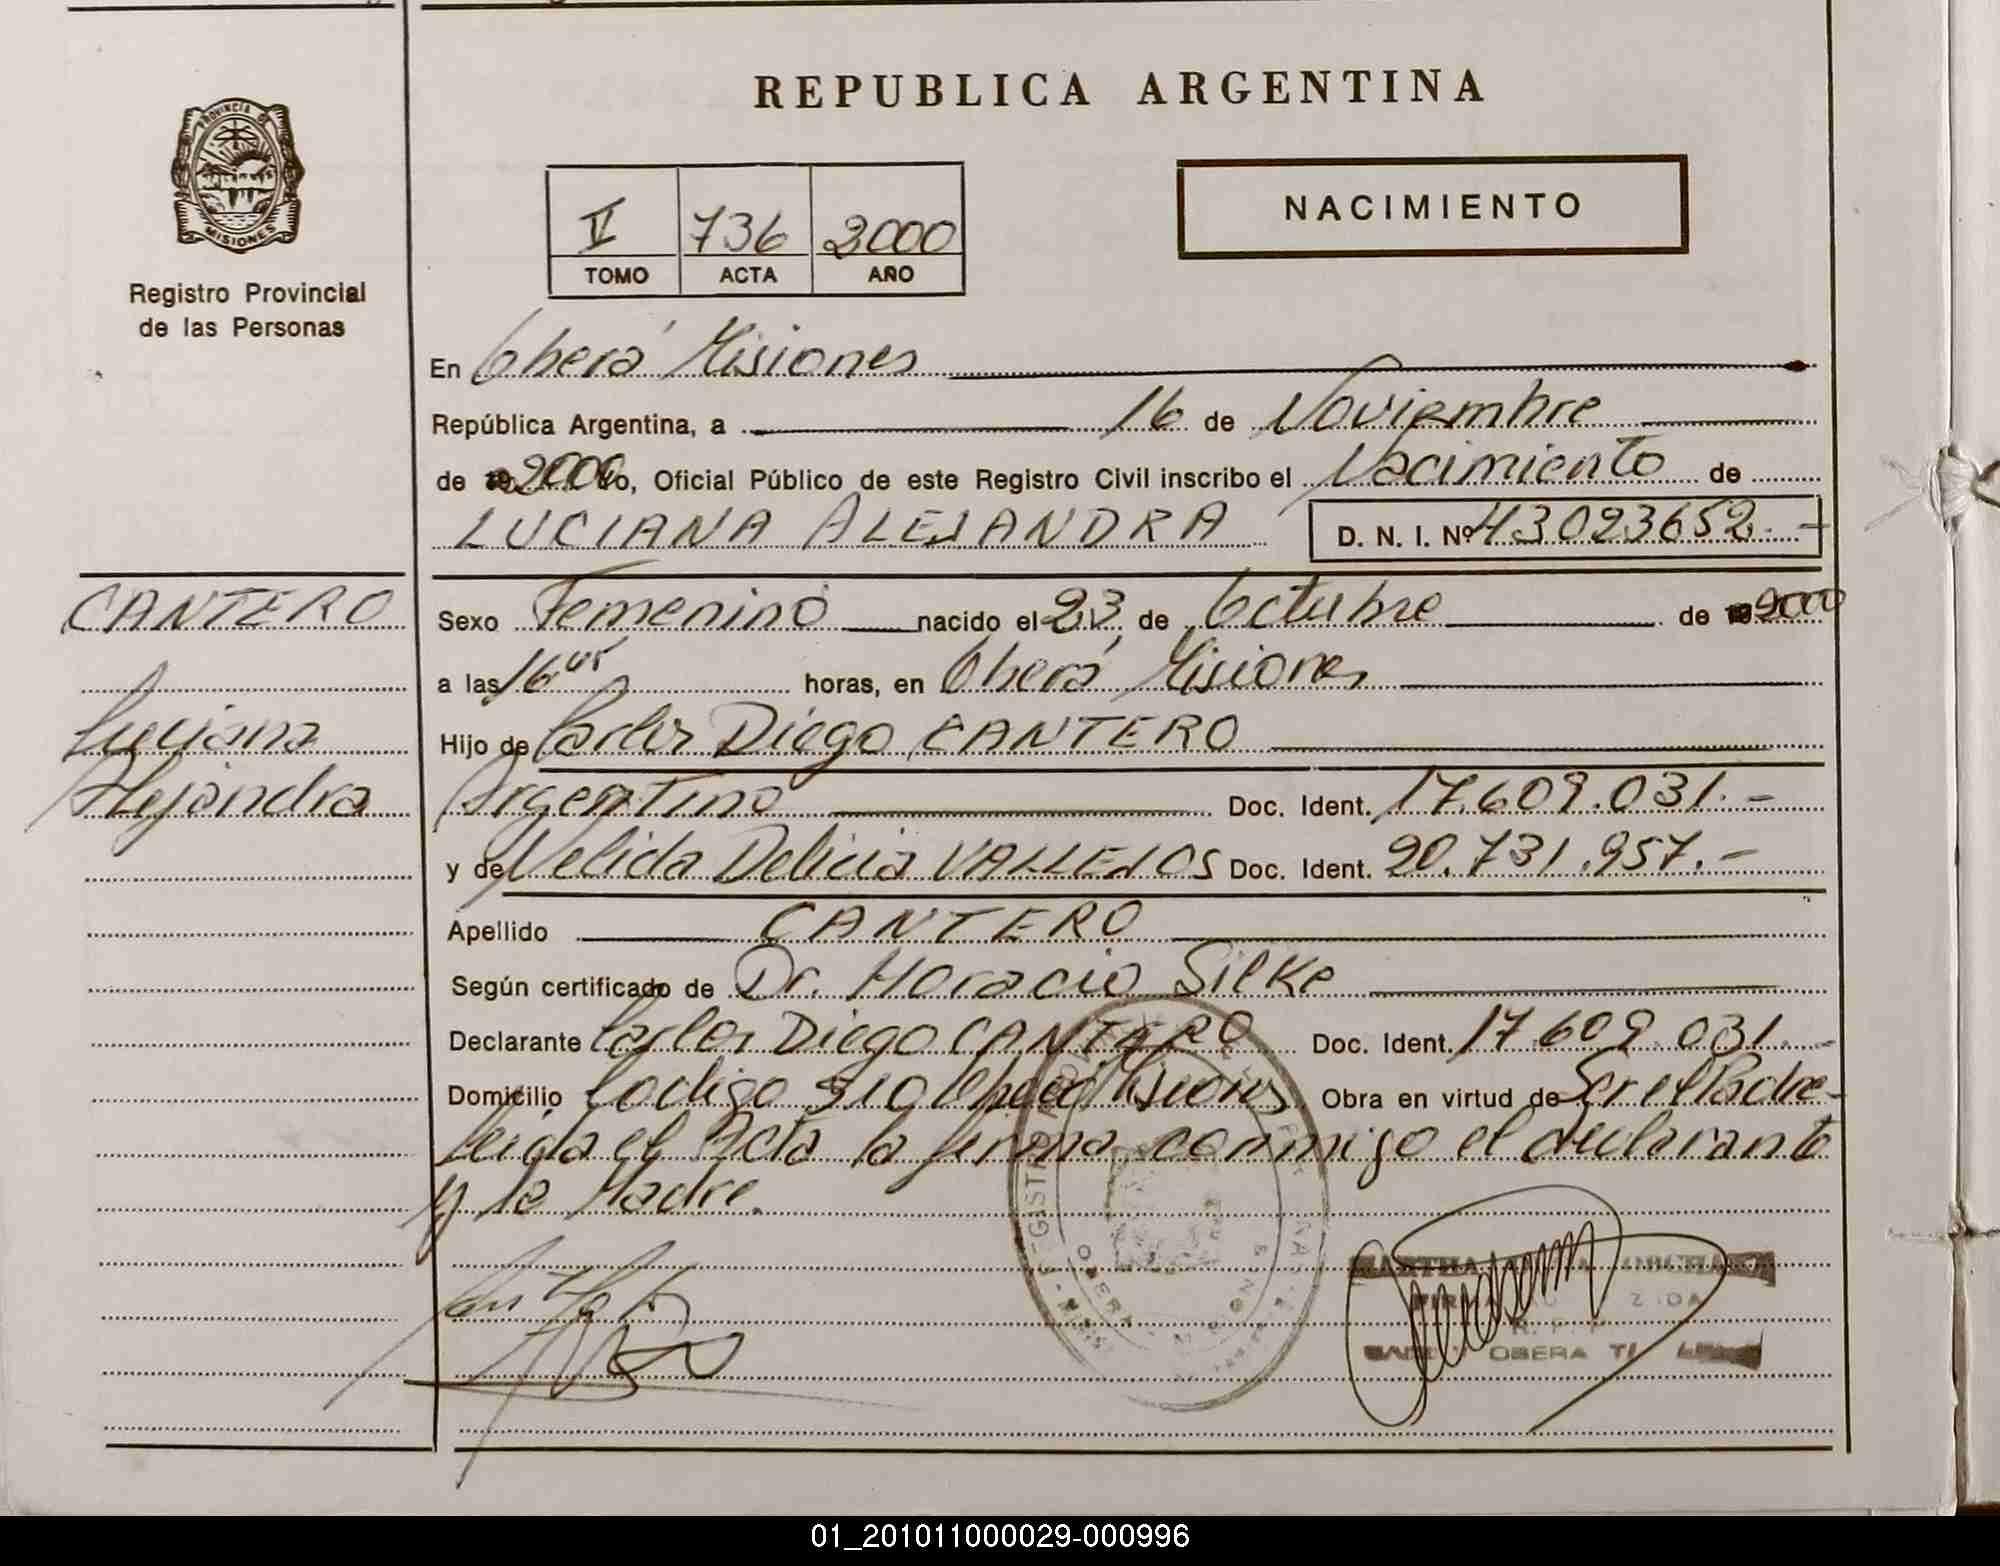 REPUBLICA ARGENTINA
PROVINCIA DE
MISIONES
Registro Provincial
de las Personas
NACIMIENTO
736 2000
TOMO ACTA AÑO
En Oberá Misiones
República Argentina, a 16 de Noviembre
de 2000 Yo, Oficial Público de este Registro Civil inscribo el Nacimiento de
LUCIANA ALEJANDRA D. N. I. Nº 43023652.-
CANTERO
Luciana
Alejandra
Sexo Femenino nacido el 23 de Octubre de 2000
a las 16 horas, en Oberá Misiones
Hijo de Carlos Diego CANTERO
Argentino Doc. Ident. 17.609.031.-
y de Nelida Delicia VALLEJOS Doc. Ident. 20.731.957.-
Apellido CANTERO
Según certificado de Dr. Horacio Silke
Declarante Carlos Diego CANTERO Doc. Ident. 17.609.031.-
Domicilio Codigo 310 Oberá Misiones Obra en virtud de Ser el Padre
Leida el Acta la firma conmigo el declarante
y la Madre.
OBERA
01_201011000029-000996